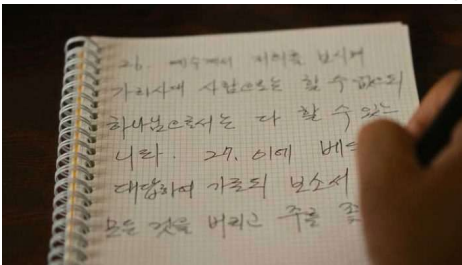 26. 예수께서 저희를 보시며
가라사대 사람으로는 할 수 없으되
하나님으로서는 다 할 수 있느
니라. 27. 이에 베드
대답하여 가로되 보소서
모든 것을 버리고 주를 좇